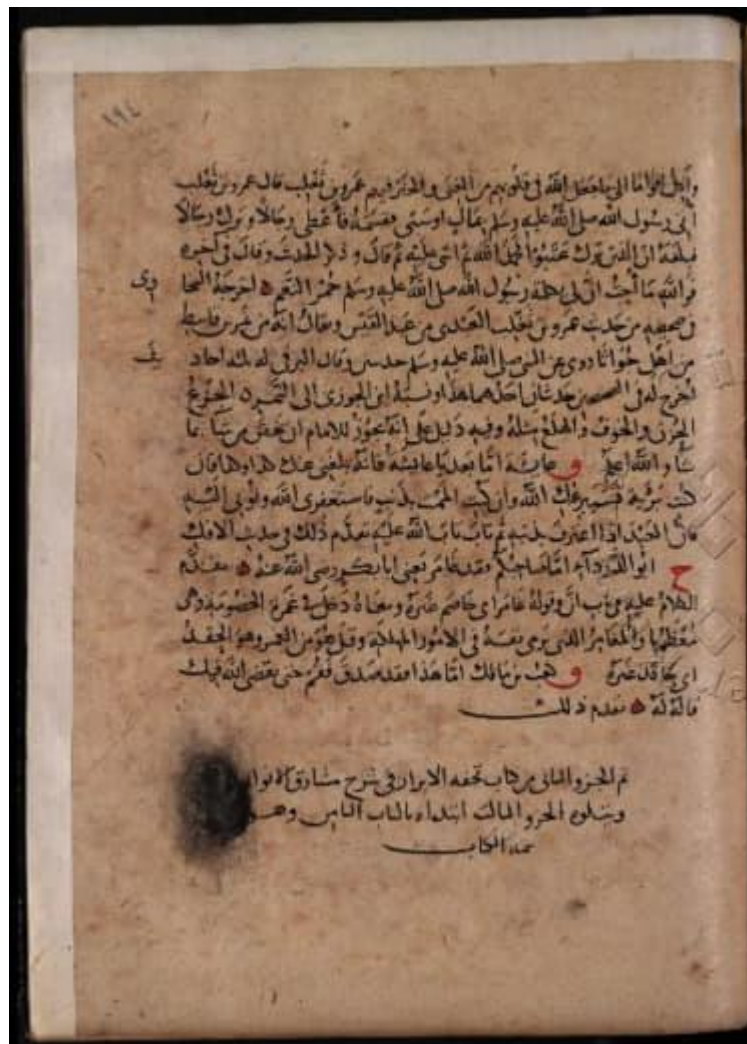 ١٩٤
وأكل اقواما الى ما جعل الله في قلوبهم من الغنى والخير فيهم عمرو بن تغلب قال عمرو بن تغلب
أتى رسول الله صلى الله عليه وسلم بمال او سبي فقسمه فأعطى رجالا وترك رجالا
فبلغه ان الذين ترك عتبوا فحمد الله ثم اثنى عليه ثم قال وذكر الحديث وقال في آخره
فوالله ما احب ان لي بكلمة رسول الله صلى الله عليه وسلم حمر النعم اخرجه البخا
رى
في صحيحه من حديث عمرو بن تغلب العبدى من عبد القيس ويقال انه من نمر بن قاسط
من اهل جواثا روى عن النبي صلى الله عليه وسلم حديثين وقال البرقي له ثلثة احاد
يث
اخرج له في الصحيح من حديثان احدهما هذا ونسبه ابن الجوزى الى النمر الجزع
الحزن والخوف والهلع مثله وفيه دليل على انه يجوز للامام ان يخص من شآ بما
شآ والله اعلم ق عايشة امّا بعد يا عايشة فانه بلغني عنك كذا وكذا فان
كنت بريّة فسيبرئك الله وان كنت الممت بذنب فاستغفرى الله وتوبى اليه
فان العبد اذا اعترف بذنبه ثم تاب تاب الله عليه تقدّم ذلك في حديث الافك
خ ابو الدردآء امّا صاحبكم فقد غامر يعنى ابا بكر رضى الله عنه تقدّم
الكلام عليه في باب ان وقوله غامر اى خاصم غيره ومعناه دخل في غمرة الخصومة وهى
معظمها والمغامر الذى يرمى بنفسه في الامور المهلكة وقيل هو من الغمر وهو الحقد
اى حاقد غيره ق كعب بن مالك امّا هذا فقد صدق فقم حتى يقضى الله فيك
قاله له تقدم ذلك
تم الجزو الثانى من كتاب تحفه الابرار في شرح مشارق الانوار
ويتلوه الجزو الثالث ابتداه بالباب الثامن وهو
تتمة الكتاب